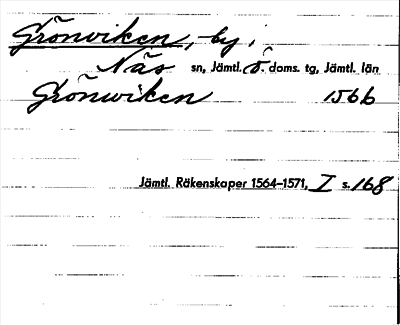 Grönviken, by i
Näs sn, Jämtl. ö. doms. tg, Jämtl. län
Grönwiken 1566
Jämtl. Räkenskaper 1564–1571, I s. 168